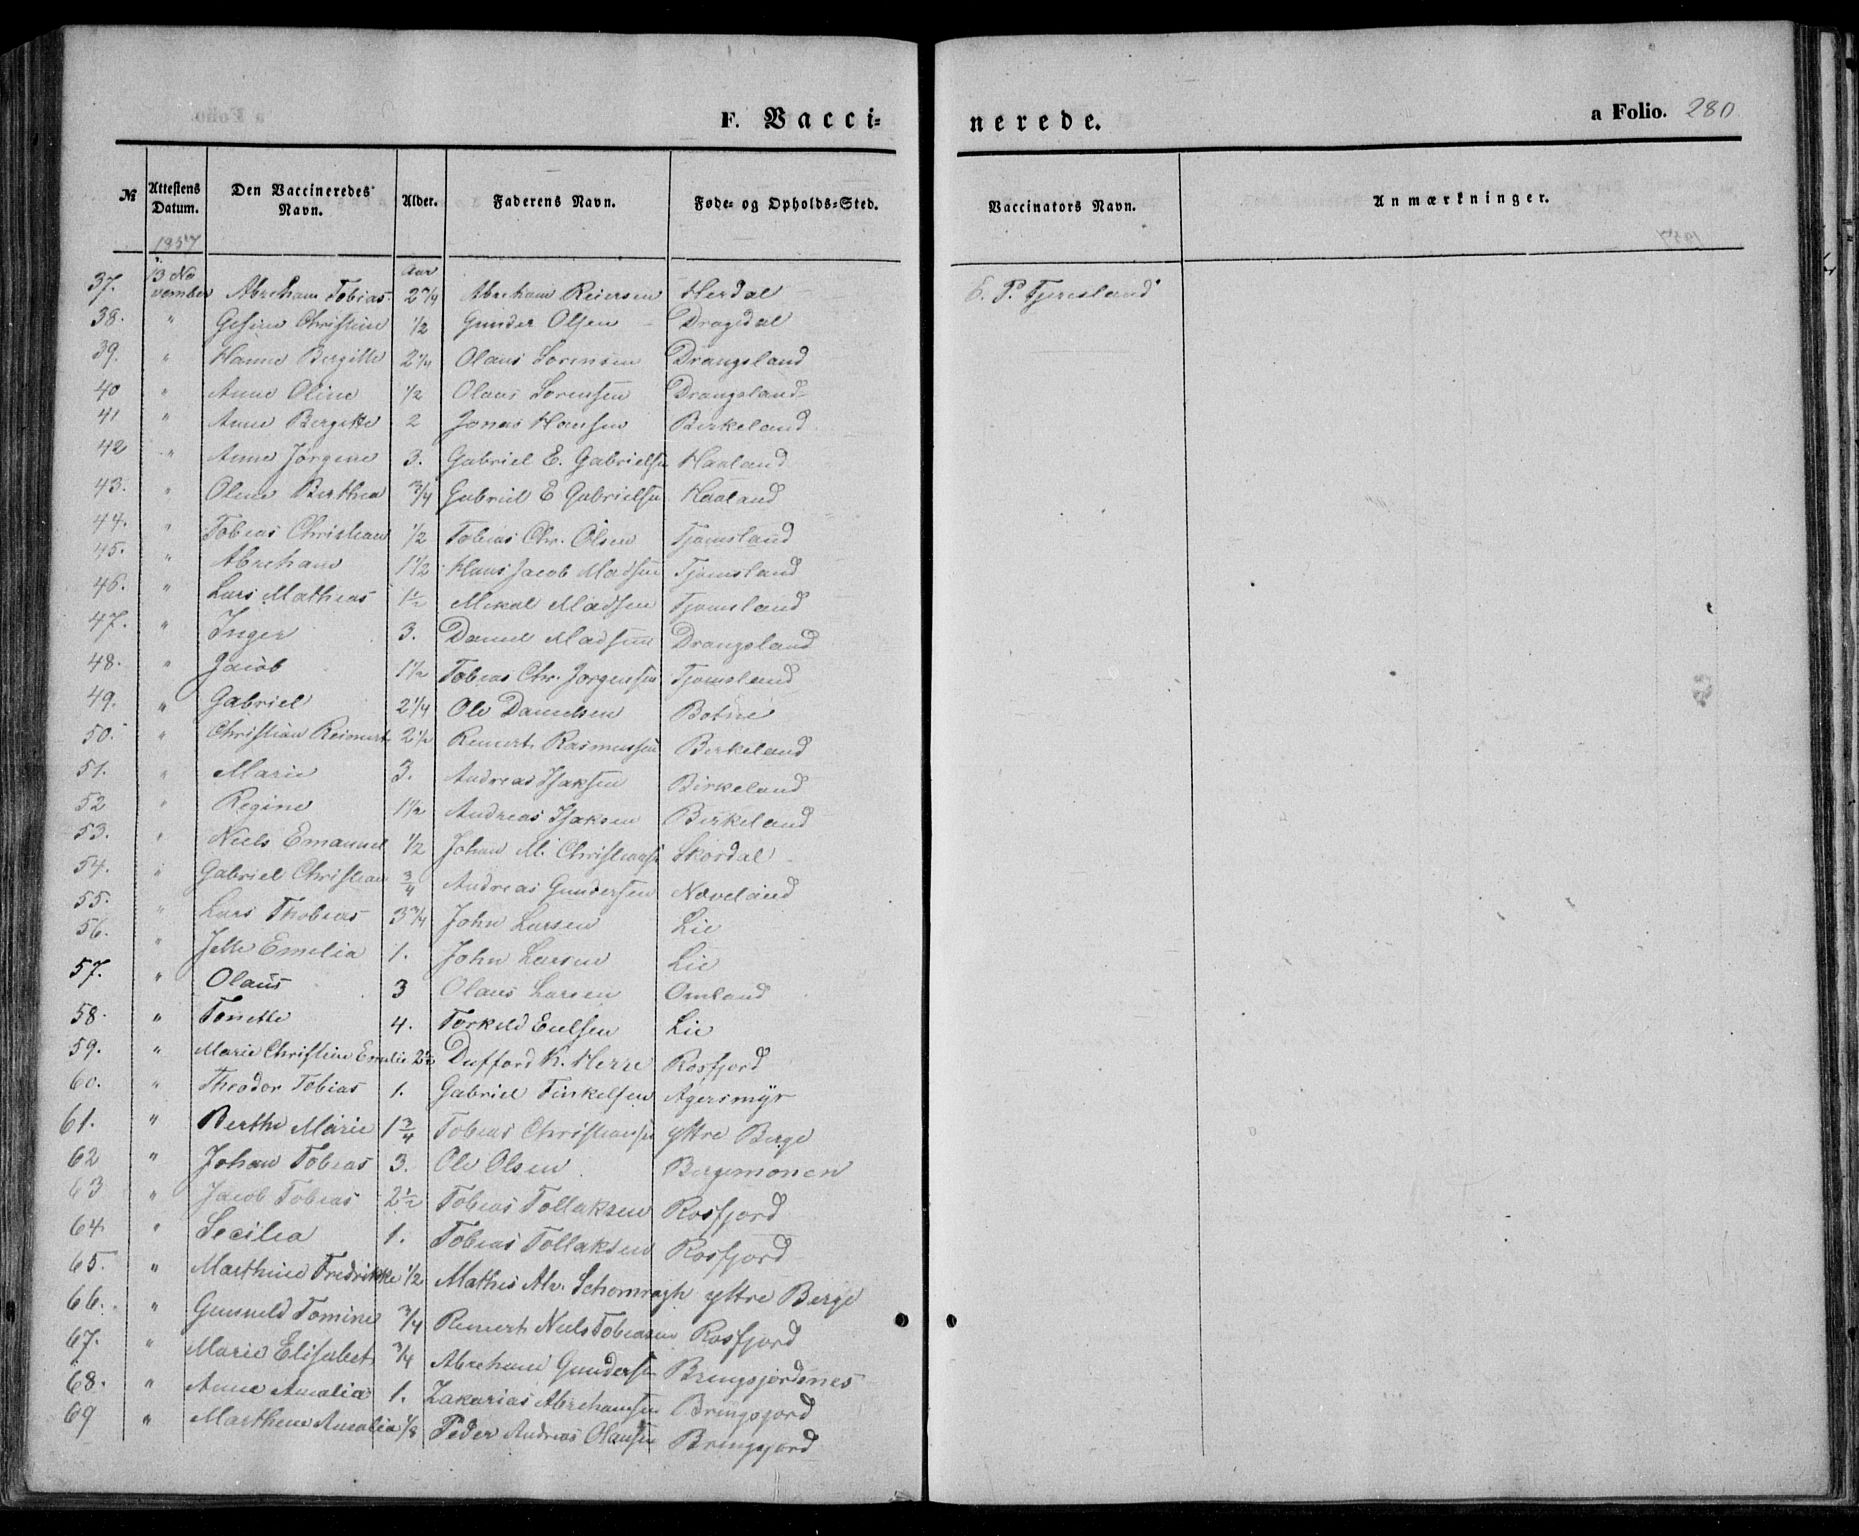 F. Vacci-
nerede.
a Folio. 280
№ Attestens Datum. Den Vaccineredes Navn. Alder. Faderens Navn. Føde- og Opholds-Sted. Vaccinators Navn. Anmærkninger.
1857
37. 13 November Abraham Tobias Aar 2 3/4 Abraham Reiersen Herdal E. P. Tjersland
38. " Gesine Christine 1/2 Gunder Olsen Dragedal
39. " Hanne Bergitte 2 1/4 Olaus Sørensen Drangsland
40 " Anne Oline 1/2 Olaus Sørensen Drangsland
41 " Anne Bergitte 2 Jonas Hansen Birkeland
42 " Anne Jørgene 3. Gabriel E. Gabrielsen Haaland
43. " Olene Berthea 3/4 Gabriel E Gabrielsen Haaland
44. " Tobias Christian 1/2 Tobias Chr. Olsen Tjomsland
45. " Abraham 1 1/2 Hans Jacob Madsen Tjomsland
46. " Lars Mathias 1 1/2 Mikal Madsen Tjomsland
47. " Inger 3. Daniel Madsen Drangsland
48. " Jacob 1 1/2 Tobias Chr. Jørgensen Tjomsland
49. " Gabriel 2 1/4 Ole Danielsen Botne
50. " Christian Reinert 2 1/2 Reinert Rasmussen Birkeland
51. " Marie 3. Andreas Isaksen Birkeland
52 " Regine 1 1/2 Andreas Isaksen Birkeland
53. " Niels Emanuel 1/2 Johan M. Christiansen Skordal
54. " Gabriel Christian 3/4 Andreas Gundersen Næveland
55. " Lars Thobias 3 3/4 John Larsen Lie
56. " Jette Emelia 1. John Larsen Lie
57. " Olaus 3 Olaus Larsen Omland
58. " Tonette 4. Torkeld Eielsen Lie
59. " Marie Christine Emelie 2 1/2 Dufford K. Herre Rosfjord
60. " Theodor Tobias 1. Gabriel Finkelsen Agersmyr
61. " Berthe Marie 1 3/4 Tobias Christiansen yttre Berge
62 " Johan Tobias 3. Ole Olsen Bergemonen
63 " Jacob Tobias 2 1/2 Tobias Tollaksen Rosfjord
64 " Secilia 1. Tobias Tollaksen Rosfjord
65. " Marthine Fredrikke 1/2 Mathis Alv. Schomragh yttre Berge
66. " Gunneld Tomine 3/4 Reinert Niels Tobiasen Rosfjord
67. " Marie Elisabet 3/4 Abraham Gundersen Bringsjordenes
68. " Anne Amalia 1. Zakarias Abrahamsen Bringsjord
69 " Marthine Amalia 1/8 Peder Andreas Olausen Bringsjord